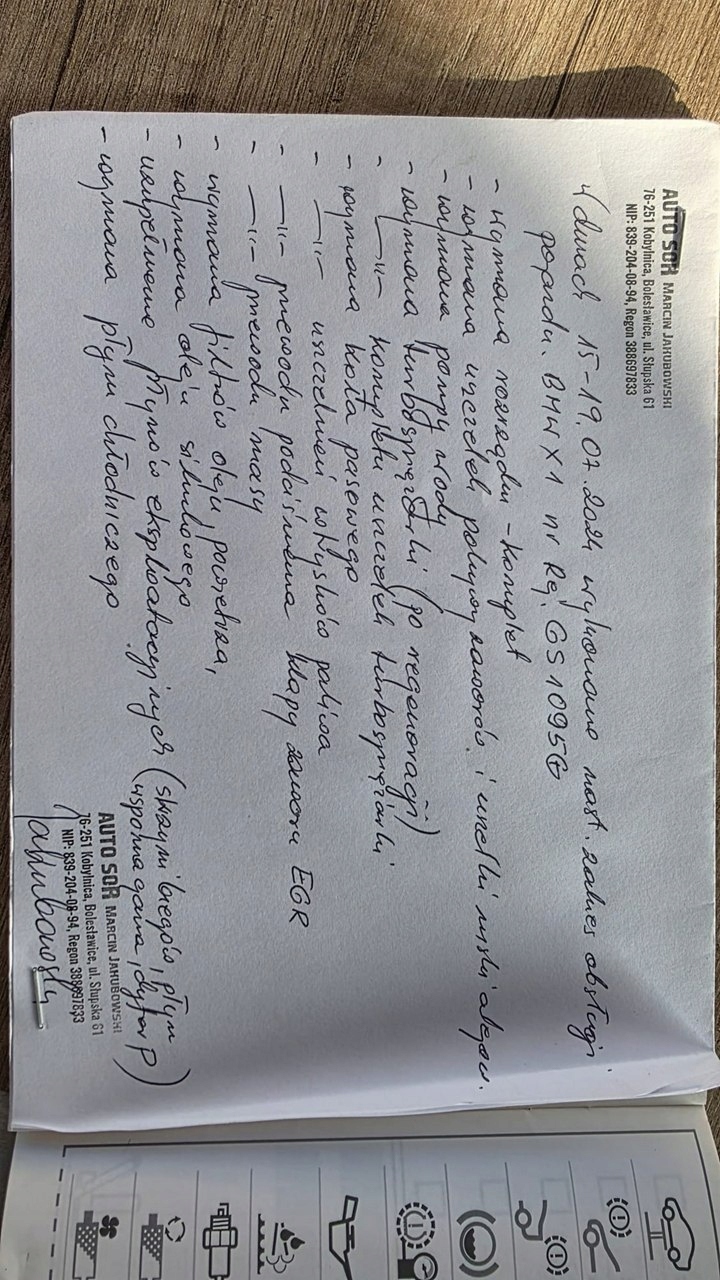 AUTO SOR MARCIN JAKUBOWSKI
76-251 Kobylnica, Bolesławice, ul. Słupska 61
NIP: 839-204-08-94, Regon 388697833
W dniach 15-19.07.2024 wykonano nast. zakres obsługi
pojazdu. BMW X1 nr Rej. GS1095G
- wymiana rozrządu - komplet
- wymiana uszczelek pokrywy zaworów i uszczelki miski olejow.
- wymiana pompy wody
- wymiana turbosprężarki (po regeneracji)
- —"— kompletu uszczelek turbosprężarki
- wymiana koła pasowego
- —"— uszczelnień wtrysków paliwa
- —"— przewodu podciśnienia klapy zaworu EGR
- —"— przewodu masy
- wymiana filtrów oleju, powietrza,
- wymiana oleju silnikowego
- uzupełnienie płynów eksploatacyjnych (skrzyni biegów, płyn
wspomagania, dyfer P)
- wymiana płynu chłodniczego
AUTO SOR MARCIN JAKUBOWSKI
76-251 Kobylnica, Bolesławice, ul. Słupska 61
NIP: 839-204-08-94, Regon 388697833
Jakubowski